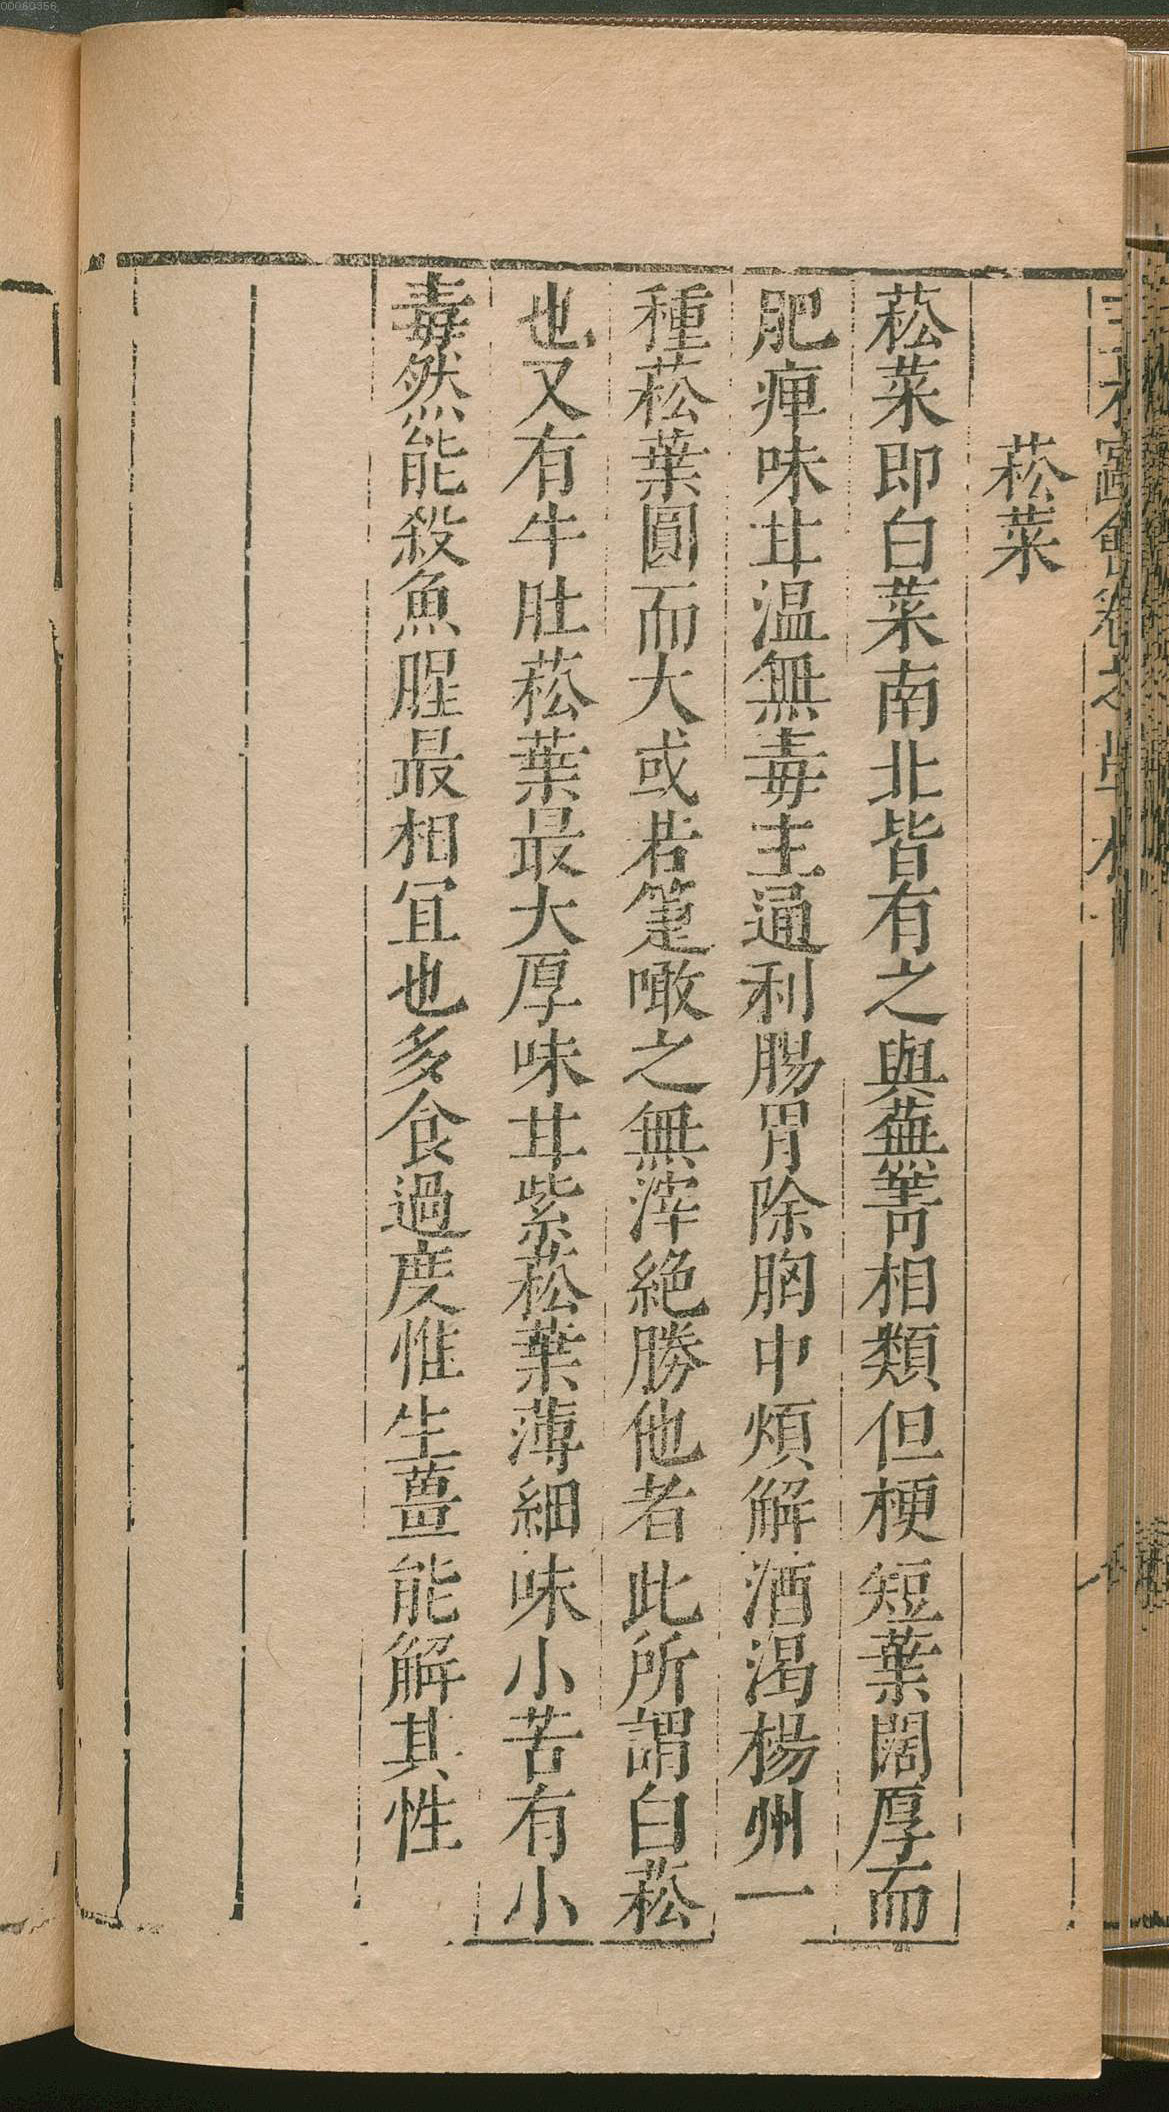 菘菜
菘菜即白菜南北皆有之與蕪菁相類但梗短葉闊厚而
肥痺味甘温無毒主通利腸胃除胸中煩解酒渴楊州一
種菘葉圓而大或若箑噉之無滓絶勝他者此所謂白菘
也又有牛肚菘葉最大厚味甘紫菘葉薄細味小苦有小
毒然能殺魚腥最相宜也多食過度惟生薑能解其性
00060356